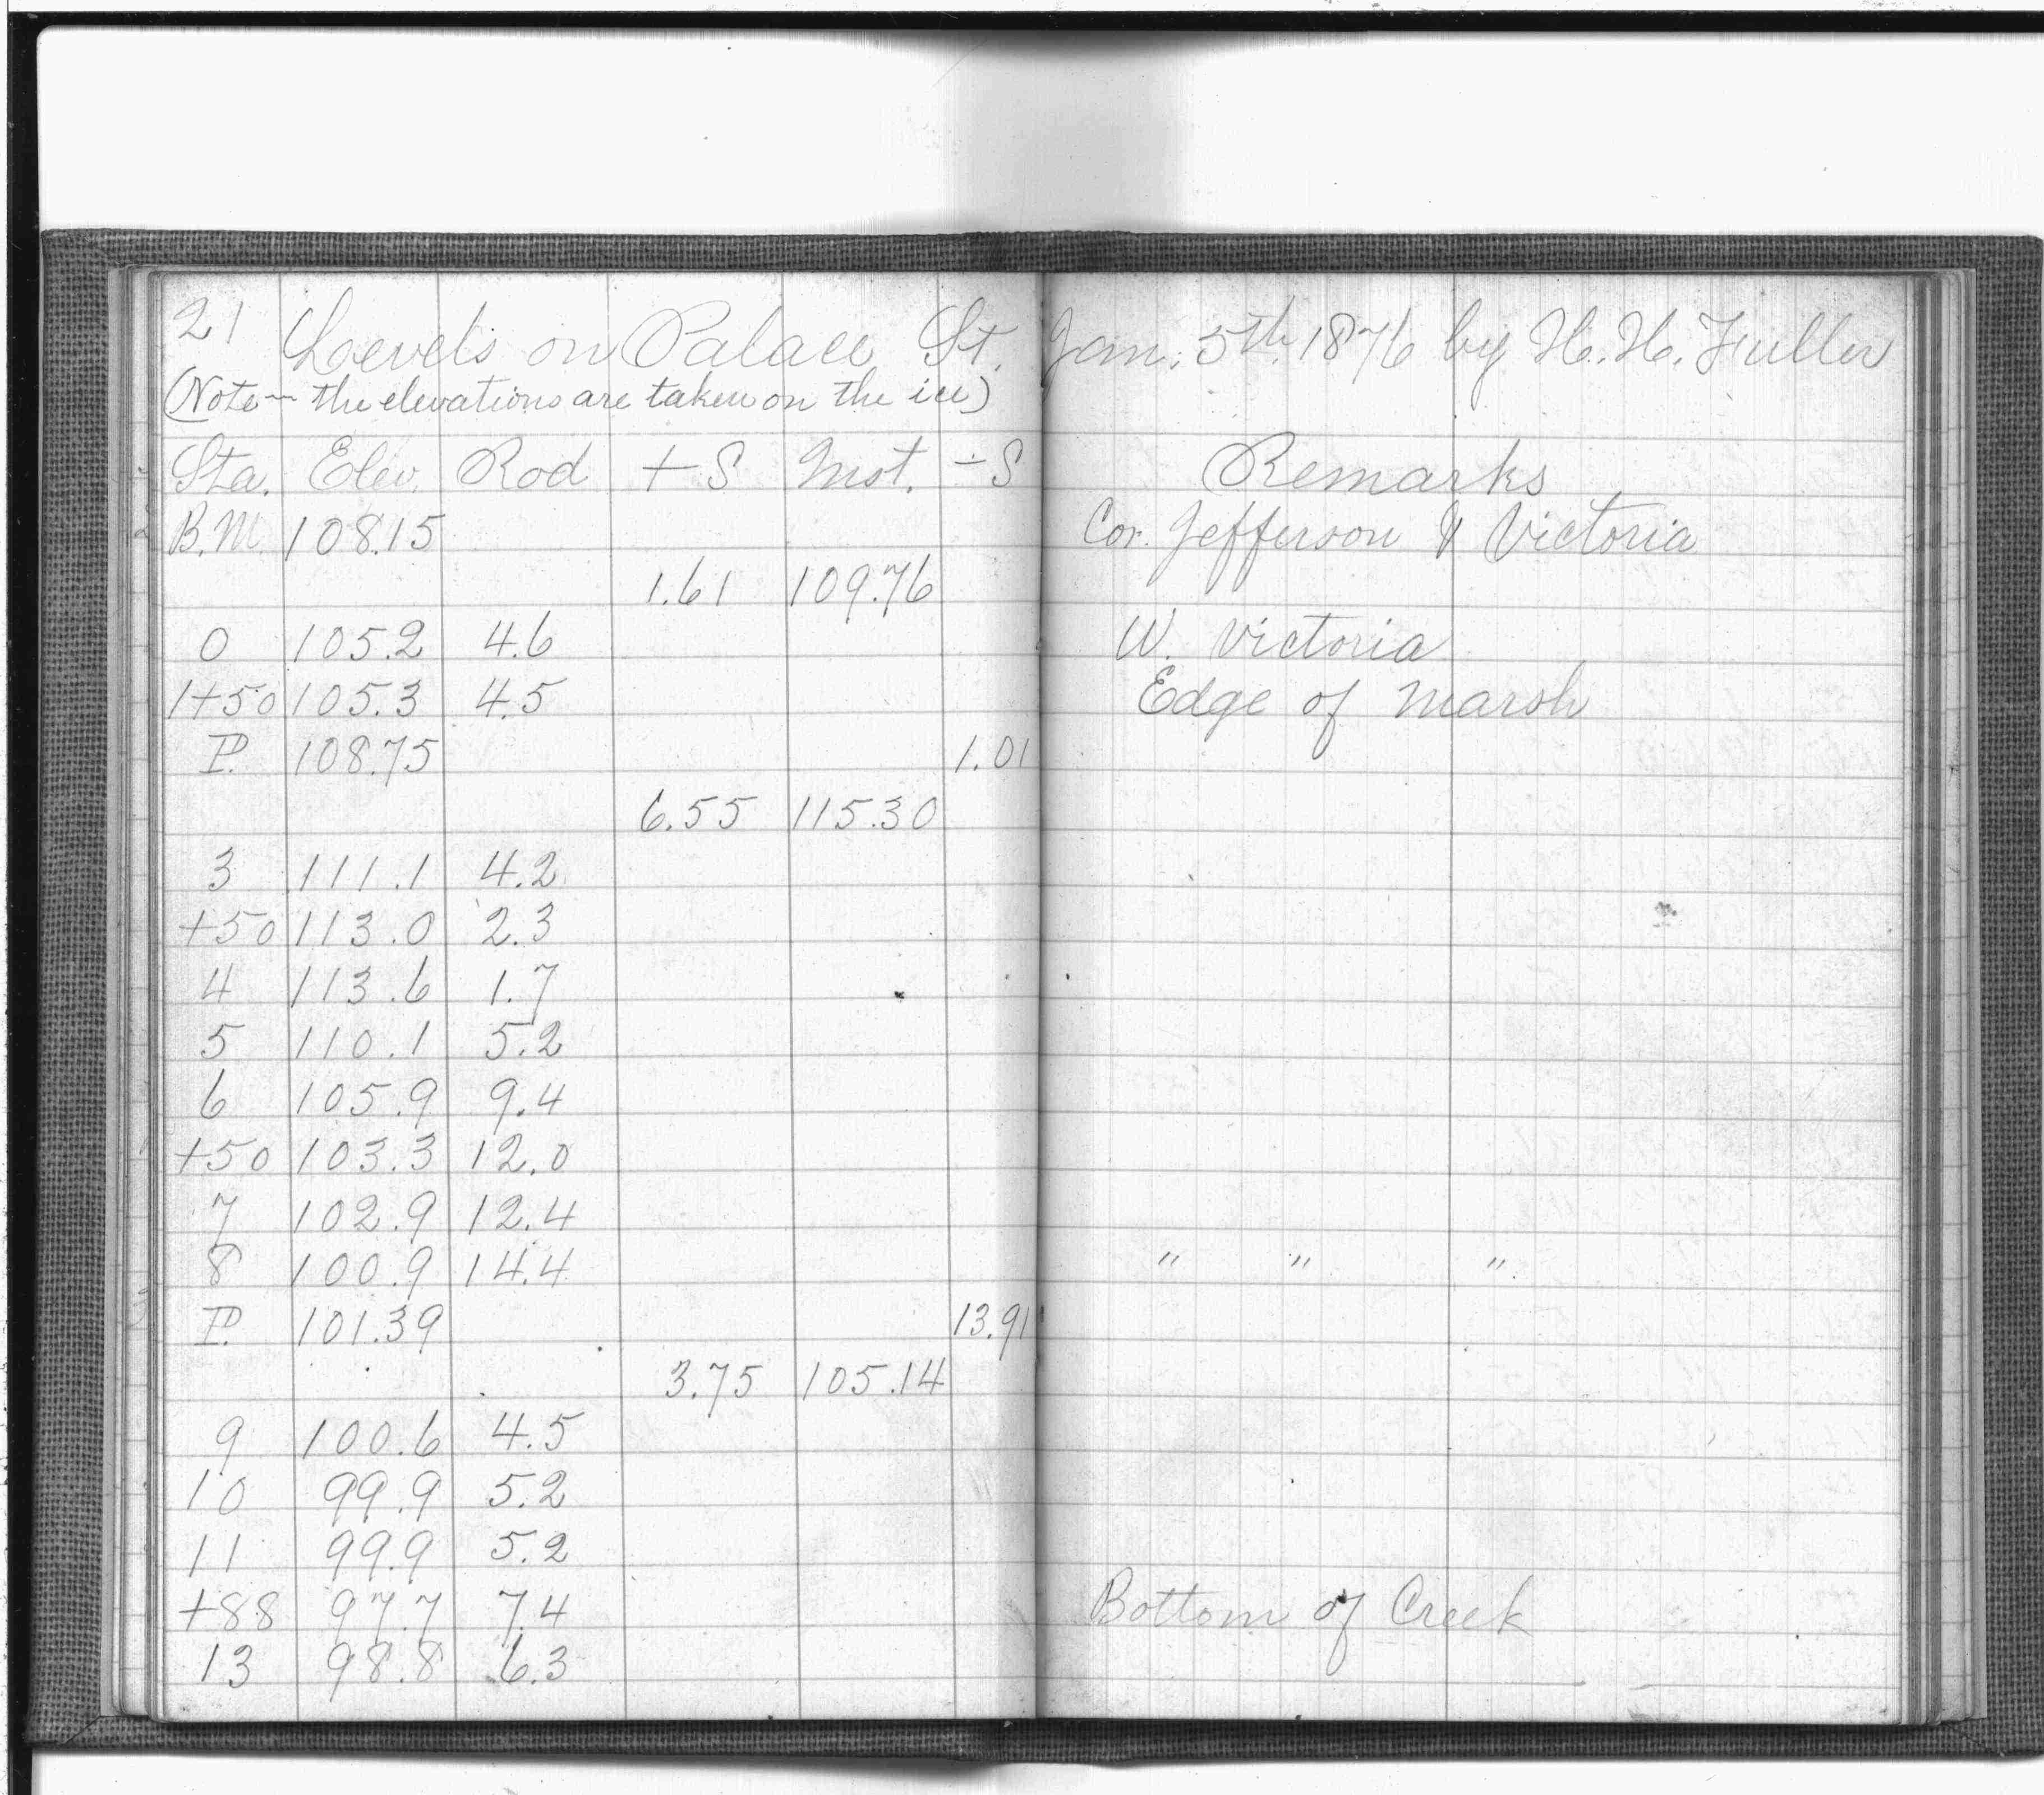 21 Levels on Palace St. Jan. 5th. 1876 by H. H. Fuller
(Note - the elevations are taken on the ice)
Sta. Elev. Rod + S Inst. - S Remarks
B.M. 108.15 Cor. Jefferson & Victoria
1.61 109.76
0 105.2 4.6 W. Victoria
1+50 105.3 4.5 Edge of Marsh
P. 108.75 1.01
6.55 115.30
3 111.1 4.2
+50 113.0 2.3
4 113.6 1.7
5 110.1 5.2
6 105.9 9.4
+50 103.3 12.0
7 102.9 12.4
8 100.9 14.4 " " "
P. 101.39 13.91
3.75 105.14
9 100.6 4.5
10 99.9 5.2
11 99.9 5.2
+88 97.7 7.4 Bottom of Creek
13 98.8 6.3